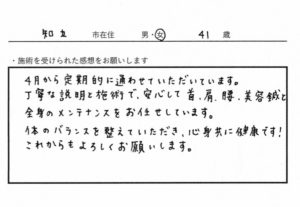 知立 市在住 男・女 41 歳
・施術を受けられた感想をお願いします
4月から定期的に通わせていただいています。
丁寧な説明と施術で、安心して首、肩、腰、美容鍼と
全身のメンテナンスをお任せしています。
体のバランスを整えていただき、心身共に健康です!
これからもよろしくお願いします。